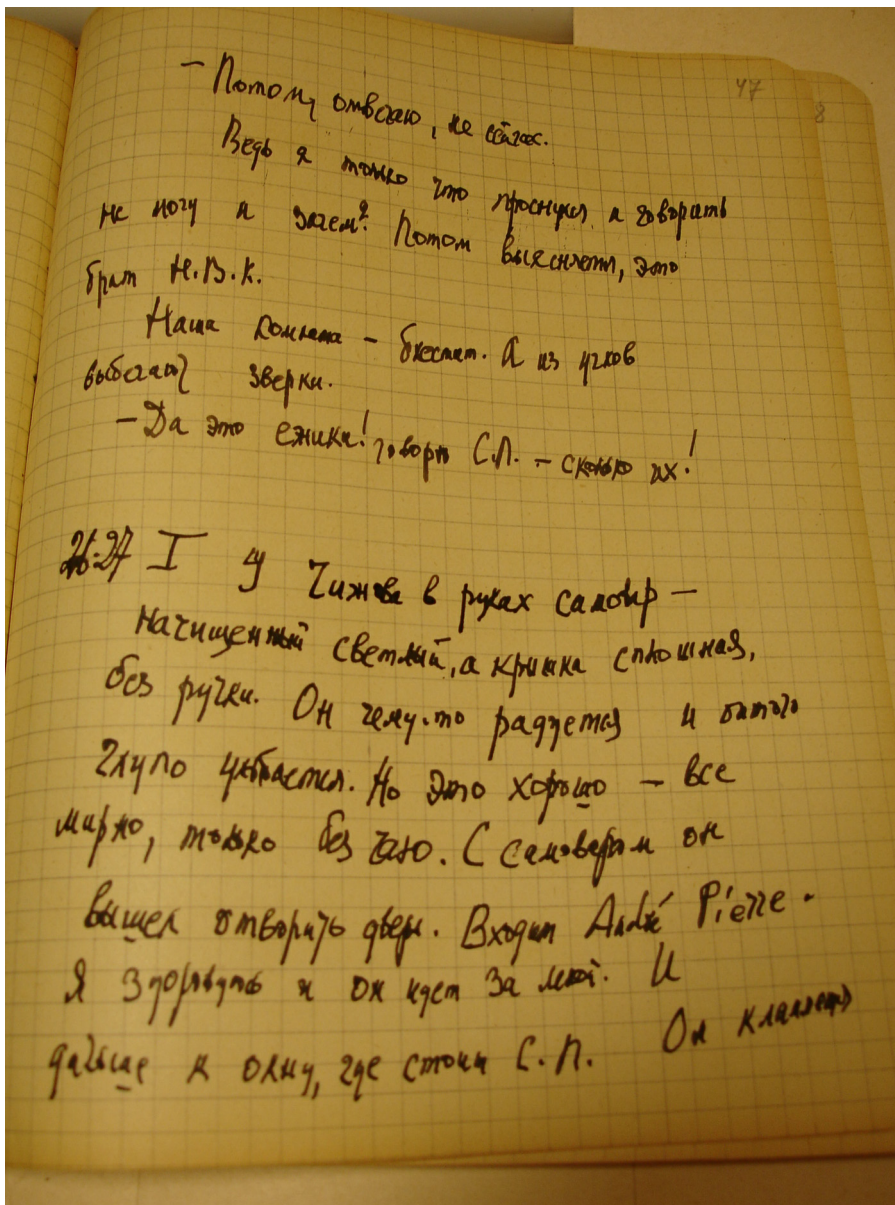 47
8
— Потому отвечаю, не сейчас.
Ведь я только что проснулся и говорить
не могу и зачем? Потом выясняется, это
брат Н.В.К.
Наша комната — блестит. А из углов
выбегают зверки.
— Да это ежики! говорит С.П. — сколько их!
26-27 I У Чижова в руках самовар —
начищенный светлый, а крышка сплошная,
без ручки. Он чему-то радуется и
глупо улыбается. Но это хорошо — все
мирно, только без чаю. С самоваром он
вышел отворить дверь. Входит André Pierre.
Я здороваюсь и он идет за мной. И
дальше к окну, где стоит С.П. Он кланяется